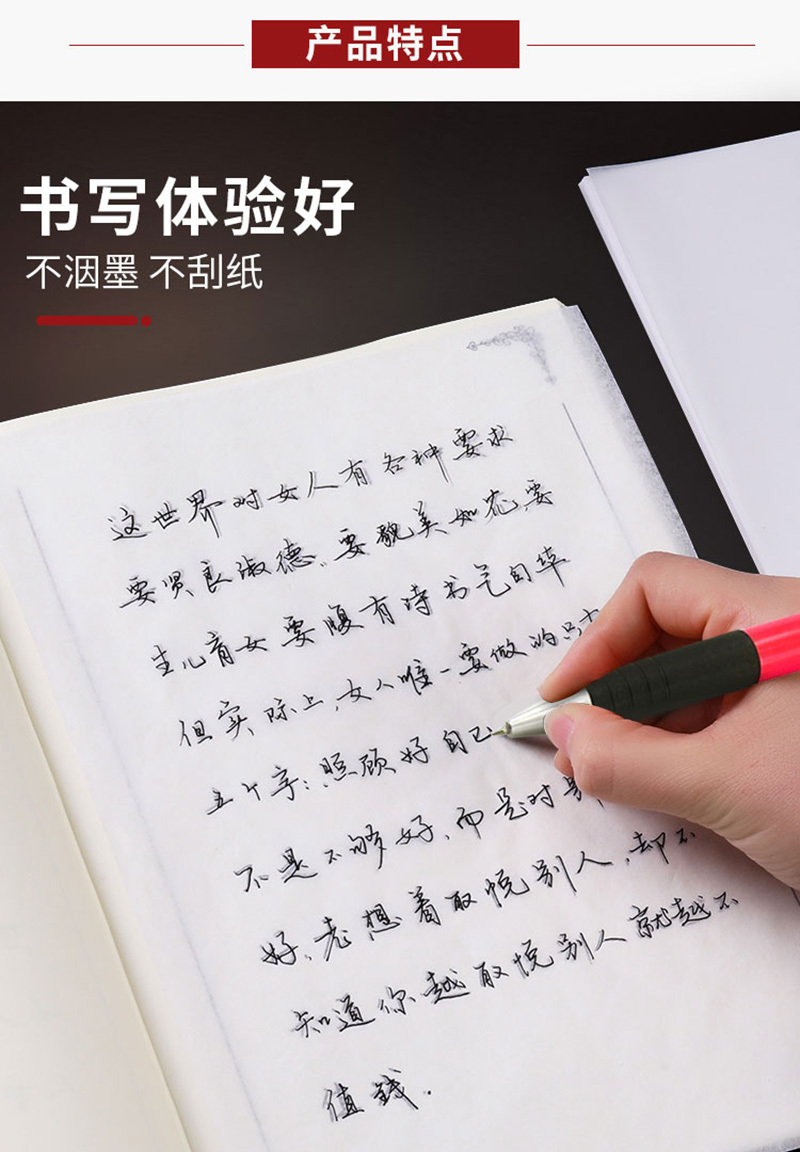 产品特点
书写体验好
不洇墨 不刮纸
这世界对女人有各种要求
要贤良淑德、要貌美如花,要
生儿育女要腹有诗书气自华
但实际上,女人唯一要做的只
五个字:照顾好自己
不是不够好,而是对
好、老想着取悦别人,却不
知道你越取悦别人就越不
值钱.